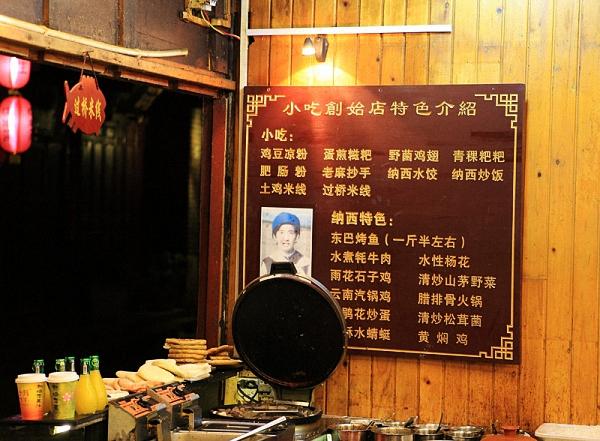 小吃創始店特色介紹
小吃：
鸡豆凉粉 蛋煎糍粑 野菌鸡翅 青稞粑粑
肥肠粉 老麻抄手 纳西水饺 纳西炒饭
土鸡米线 过桥米线
纳西特色：
东巴烤鱼（一斤半左右）
水煮牦牛肉 水性杨花
雨花石子鸡 清炒山茅野菜
云南汽锅鸡 腊排骨火锅
鹃花炒蛋 清炒松茸菌
水蜻蜓 黄焖鸡
过桥米线